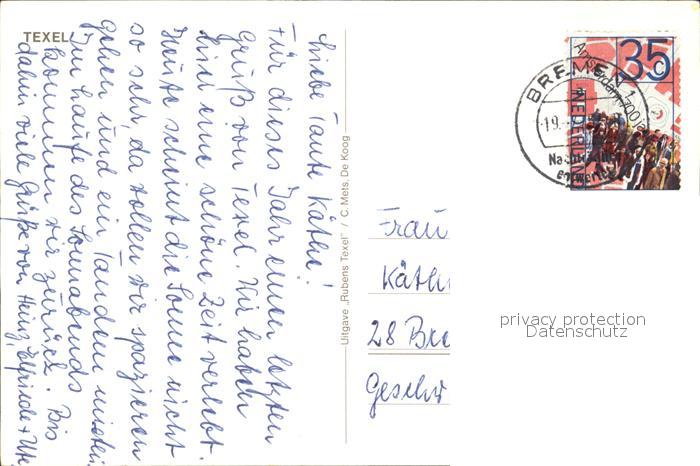 TEXEL
Liebe Tante Käthe!
Für dieses Jahr einen letzten
Gruß von Texel. Wir haben
hier eine schöne Zeit verlebt.
Heute scheint die Sonne nicht
so sehr, da wollen wir spazieren
gehen und ein Tandem mieten.
Im Laufe des Sonnabends
kommen wir zurück. Bis
dahin viele Grüße von Heinz, Elfriede + Ute
Uitgave „Rubens Texel" / C. Mets, De Koog
35 c
Amsterdam 700 jaar
NEDERLAND
BREMEN 1
19.
Nachträglich
entwertet
Frau
Käth
28 Bre
Geschw
privacy protection
Datenschutz